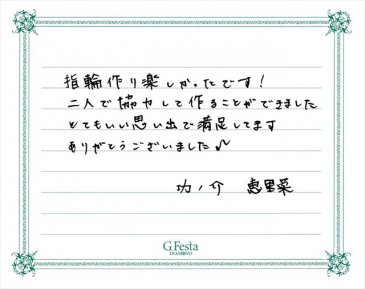 指輪作り楽しかったです！
二人で協力して作ることができました
とてもいい思い出で満足してます
ありがとうございました♪
功ノ介 恵里菜
G.Festa
DIAMOND